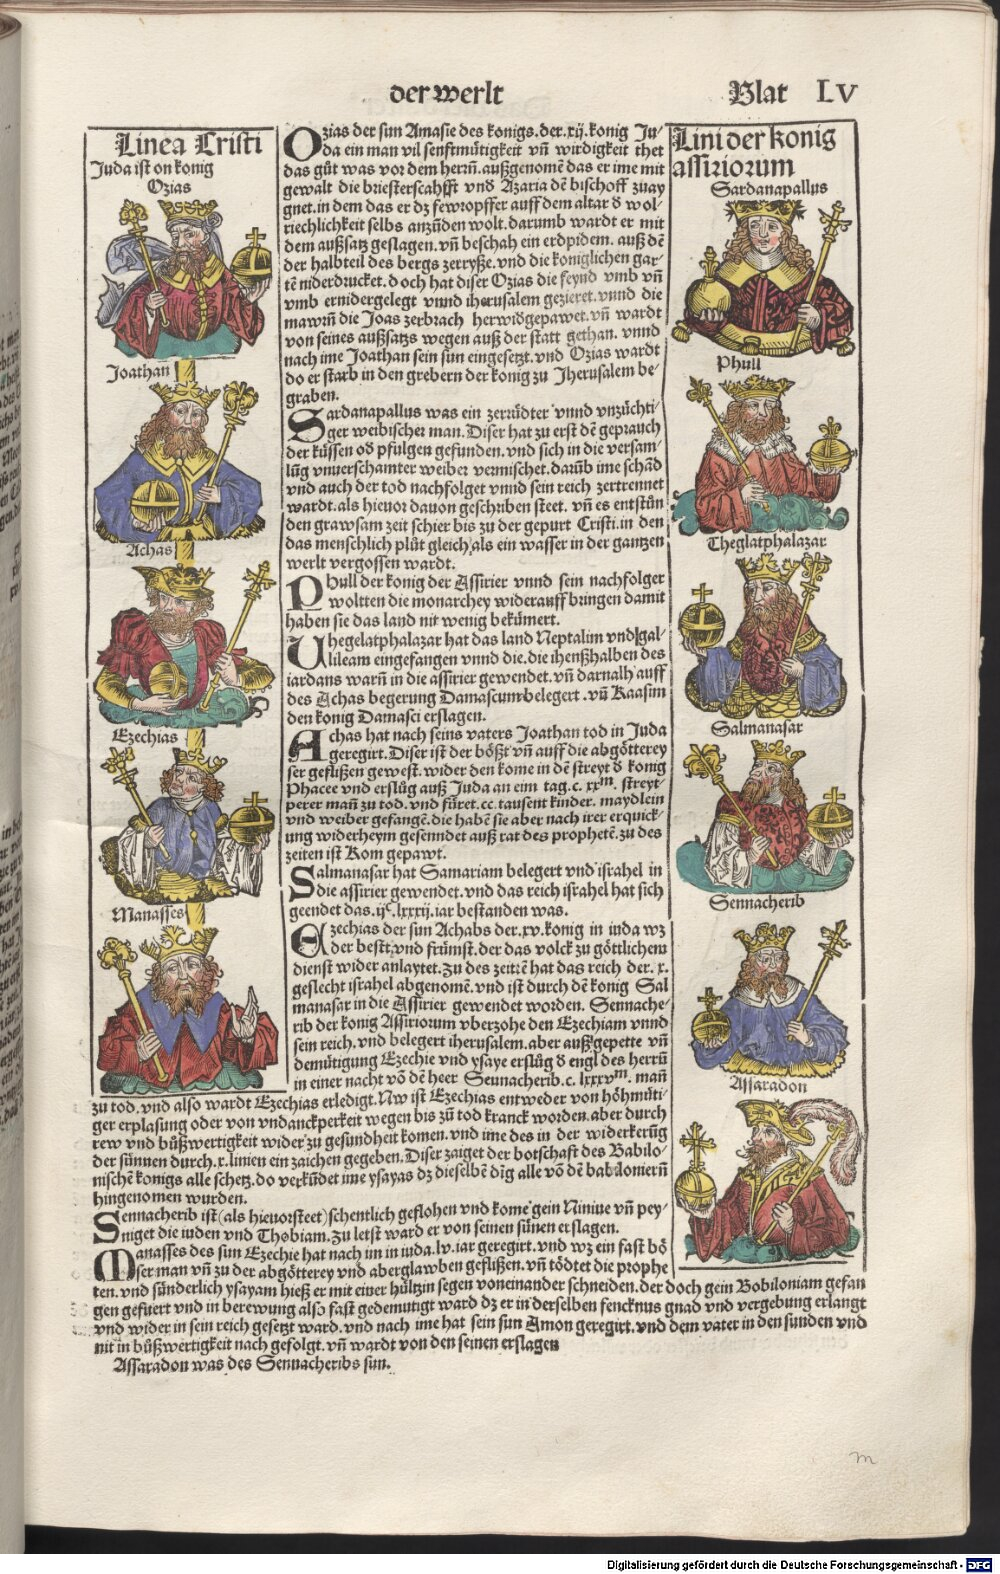 der werlt
Blat LV
Linea Cristi
Juda ist on konig
Ozias
Joathan
Achas
Ezechias
Manasses
Ozias der sun Amasie des konigs. der .xij. konig Ju-
da ein man vil senftmütigkeit vn̄ wirdigkeit thet
das gůt was vor dem herrn̄. außgenomē das er ime mit
gewalt die briesterschafft vnd Azaria dē bischoff zuay
gnet. in dem das er dz fewropffer auff dem altar d wol-
riechlichkeit selbs anzünden wolt. darumb wardt er mit
dem außsatz geslagen. vn̄ beschah ein erdpidem. auß dē
der halbteil des bergs zerryße. vnd die koniglichen gar-
tē niderdrucket. doch hat diser Ozias die feynd vmb vn̄
vmb ernidergelegt vnnd iherusalem gezieret. vnnd die
mawrn̄ die Joas zerbrach herwidgepawet. vn̄ wardt
von seines außsatzs wegen auß der statt gethan. vnnd
nach ime Joathan sein sun eingesetzt. vnd Ozias wardt
do er starb in den grebern der konig zu Jherusalem be-
graben.
Sardanapallus was ein zerrüdter vnnd vnzüchti-
ger weibischer man. Diser hat zu erst dē geprauch
der küssen od pfulgen gefunden. vnd sich in die versam-
lūg vnuerschamter weiber vermischet. darūb ime schād
vnd auch der tod nachfolget vnnd sein reich zertrennet
wardt. als hieuor dauon geschriben steet. vn̄ es entstūn
den grawsam zeit schier bis zu der gepurt Cristi. in den
das menschlich plůt gleich als ein wasser in der gantzen
werlt vergossen wardt.
Phull der konig der Assirier vnnd sein nachfolger
woltten die monarchey widerauff bringen damit
haben sie das land nit wenig bekümert.
Thegelatphalazar hat das land Neptalim vnd gal-
lileam eingefangen vnnd die. die ihenßhalben des
iardans warn̄ in die assirier gewendet. vn̄ darnalh auff
des Achas begerung Damascum belegert. vn̄ Raasim
den konig Damasci erslagen.
Achas hat nach seins vaters Joathan tod in Juda
geregirt. Diser ist der bößt vn̄ auff die abgötterey
ser geflißen gewest. wider den kome in dē streyt d konig
Phacee vnd erslůg auß Juda an eim tag .c. xxm. streyt-
perer man̄ zu tod. vnd füret .cc. tausent kinder. maydlein
vnd weiber gefangē. die habē sie aber nach irer erquick-
ung widerheym gesenndet auß rat des prophetē. zu des
zeiten ist Rom gepawt.
Salmanasar hat Samariam belegert vnd israhel in
die assirier gewendet. vnd das reich israhel hat sich
geendet das .ijc. lxxxij. iar bestanden was.
Ezechias der sun Achabs der .xv. konig in iuda wz
der bestt. vnd frümst. der das volck zu göttlichem
dienst wider anlaytet. Zu des zeitē hat das reich der .x.
geslecht israhel abgenomē. vnd ist durch dē konig Sal
manasar in die Assirier gewendet worden. Sennache-
rib der konig Assiriorum vberzohe den Ezechiam vnnd
sein reich. vnd belegert iherusalem. aber auß gepette vn̄
demütigung Ezechie vnd ysaye erslůg d engl des herrn̄
in einer nacht vō dē heer Sennacherib .c. lxxxvm. man̄
zu tod. vnd also wardt Ezechias erledigt. Nw ist Ezechias entweder von höhmüti-
ger erplasung oder von vndanckperkeit wegen bis zū tod kranck worden. aber durch
rew vnd bůßwertigkeit wider zu gesundheit komen. vnd ime des in der widerkerūg
der sůnnen durch .x. linien ein zaichen gegeben. Diser zaiget der botschaft des Babilo-
nischē konigs alle schetz. do verkūdet ime ysayas dz dieselbē dīg alle vō dē babiloniern̄
hingenomen wurden.
Sennacherib ist (als hieuor steet) schentlich geflohen vnd kome gein Niniue vn̄ pey-
niget die iuden vnd Thobiam. zu letst ward er von seinen sūnen erslagen.
Manasses des sun Ezechie hat nach im in iuda .lv. iar geregirt. vnd wz ein fast bö
ser man vn̄ zu der abgötterey vnd aberglawben geflißen. vn̄ tödtet die prophe
ten. vnd sůnderlich ysayam hieß er mit einer hültzin segen voneinander schneiden. der doch gein Bobiloniam gefan
gen gefuert vnd in berewung also fast gedemutigt ward dz er in derselben fencknus gnad vnd vergebung erlangt
vnd wider in sein reich gesetzt ward. vnd nach ime hat sein sun Amon geregirt. vnd dem vater in den sunden vnd
nit in bůßwertigkeit nach gefolgt. vn̄ wardt von den seinen erslagen
Assaradon was des Sennacheribs sun.
Lini der konig
assiriorum
Sardanapallus
Phull
Theglatphalazar
Salmanasar
Sennacherib
Assaradon
m
Digitalisierung gefördert durch die Deutsche Forschungsgemeinschaft - DFG